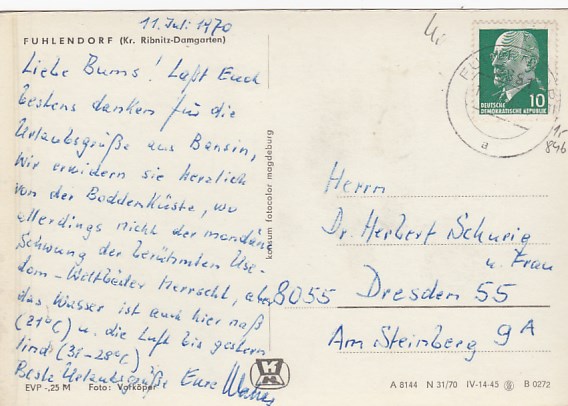 11. Juli 1970
FUHLENDORF (Kr. Ribnitz-Damgarten)
Liebe Bums! Laßt Euch
bestens danken für die
Urlaubsgrüße aus Bansin,
Wir erwidern sie herzlich
von der Boddenküste, wo
allerdings nicht der mondäne
Schwung der berühmten Use-
dom-Weltbäder herrscht, aber
das Wasser ist auch hier naß
(21°C) u. die Luft bis gestern
lind (31-28°C)
Beste Urlaubsgrüße Eure
EVP -,25 M Foto: Vatköper
konsum fotocolor magdeburg
DEUTSCHE
DEMOKRATISCHE REPUBLIK
10
a
846
Herrn
Dr. Herbert Schurig
u. Frau
8055 Dresden 55
Am Steinberg 9A
A 8144 N 31/70 IV-14-45 B 0272